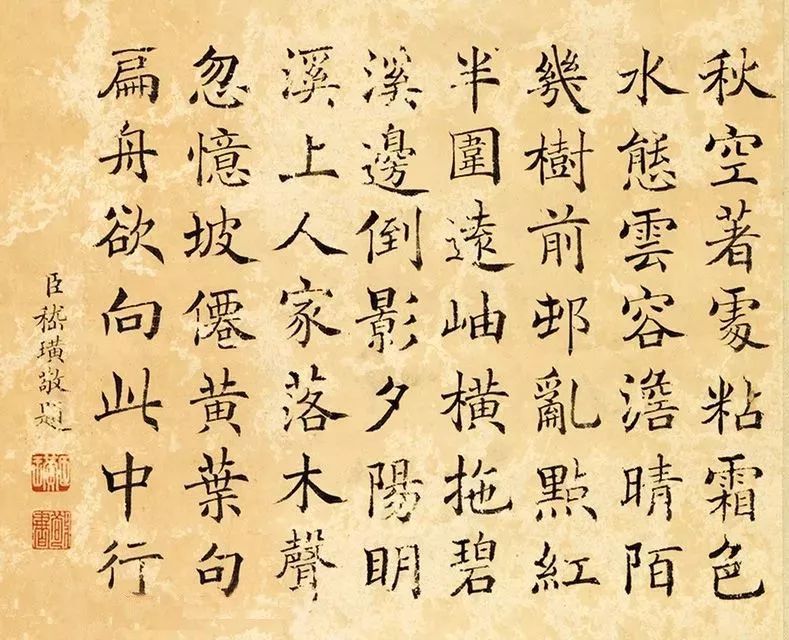 秋空著處粘霜色
水態雲容澹晴陌
幾樹前邨亂點紅
半圍遠岫橫拖碧
溪邊倒影夕陽明
溪上人家落木聲
忽憶坡僊黄葉句
扁舟欲向此中行
臣嵇璜敬題